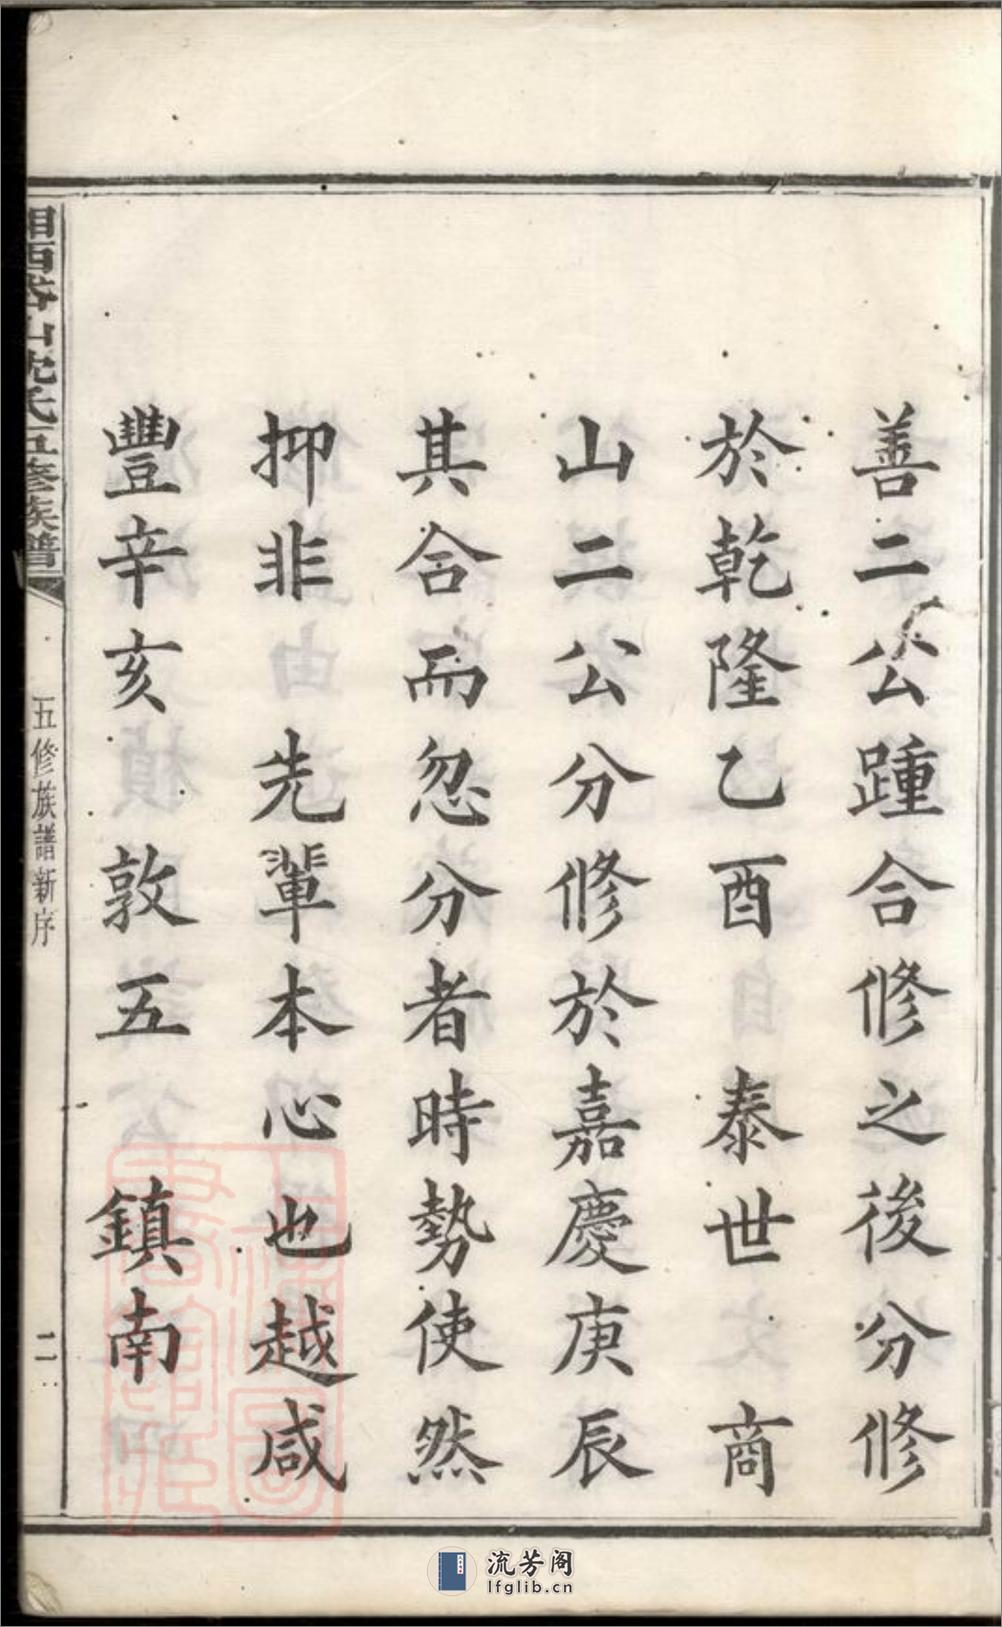 善二公踵合修之後分修
於乾隆乙酉　泰世　商
山二公分修於嘉慶庚辰
其合而忽分者時勢使然
抑非　先輩本心也越咸
豐辛亥　敦五　鎮南
山沈氏五修族譜
五修族譜新序
二
流芳阁
lfglib.cn